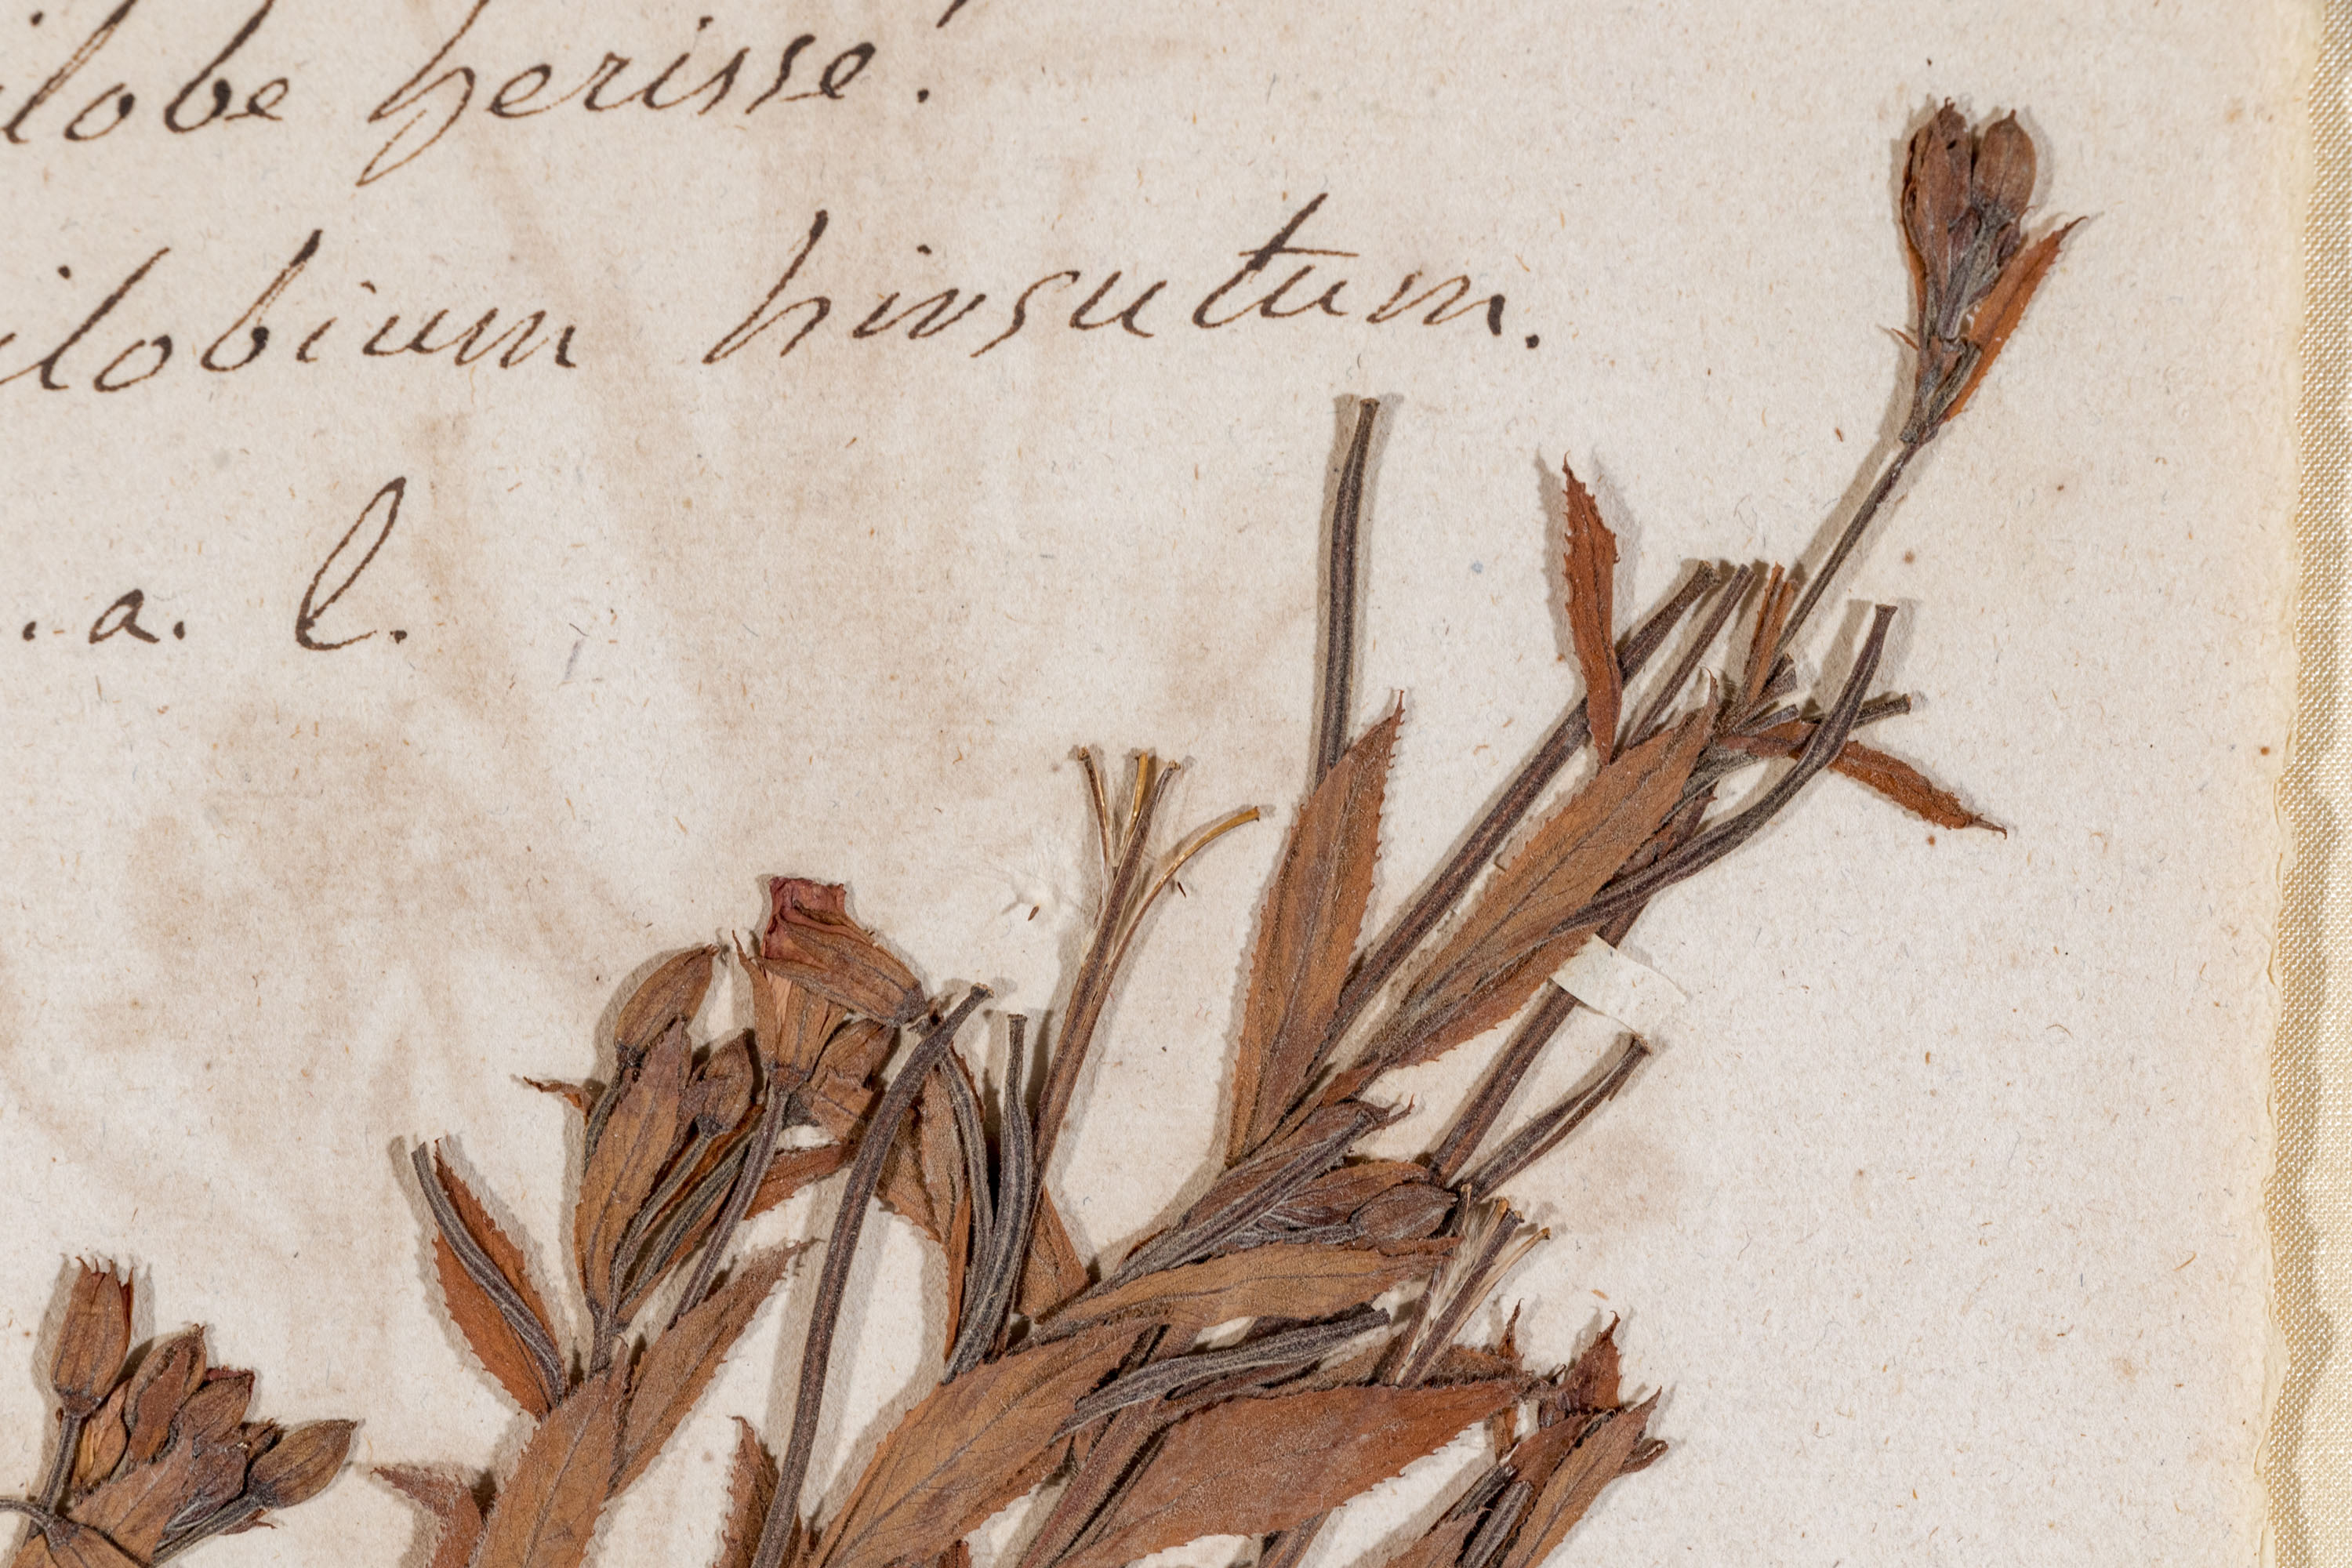 ilobe herisse.
ilobium hirsutum.
. a. l.